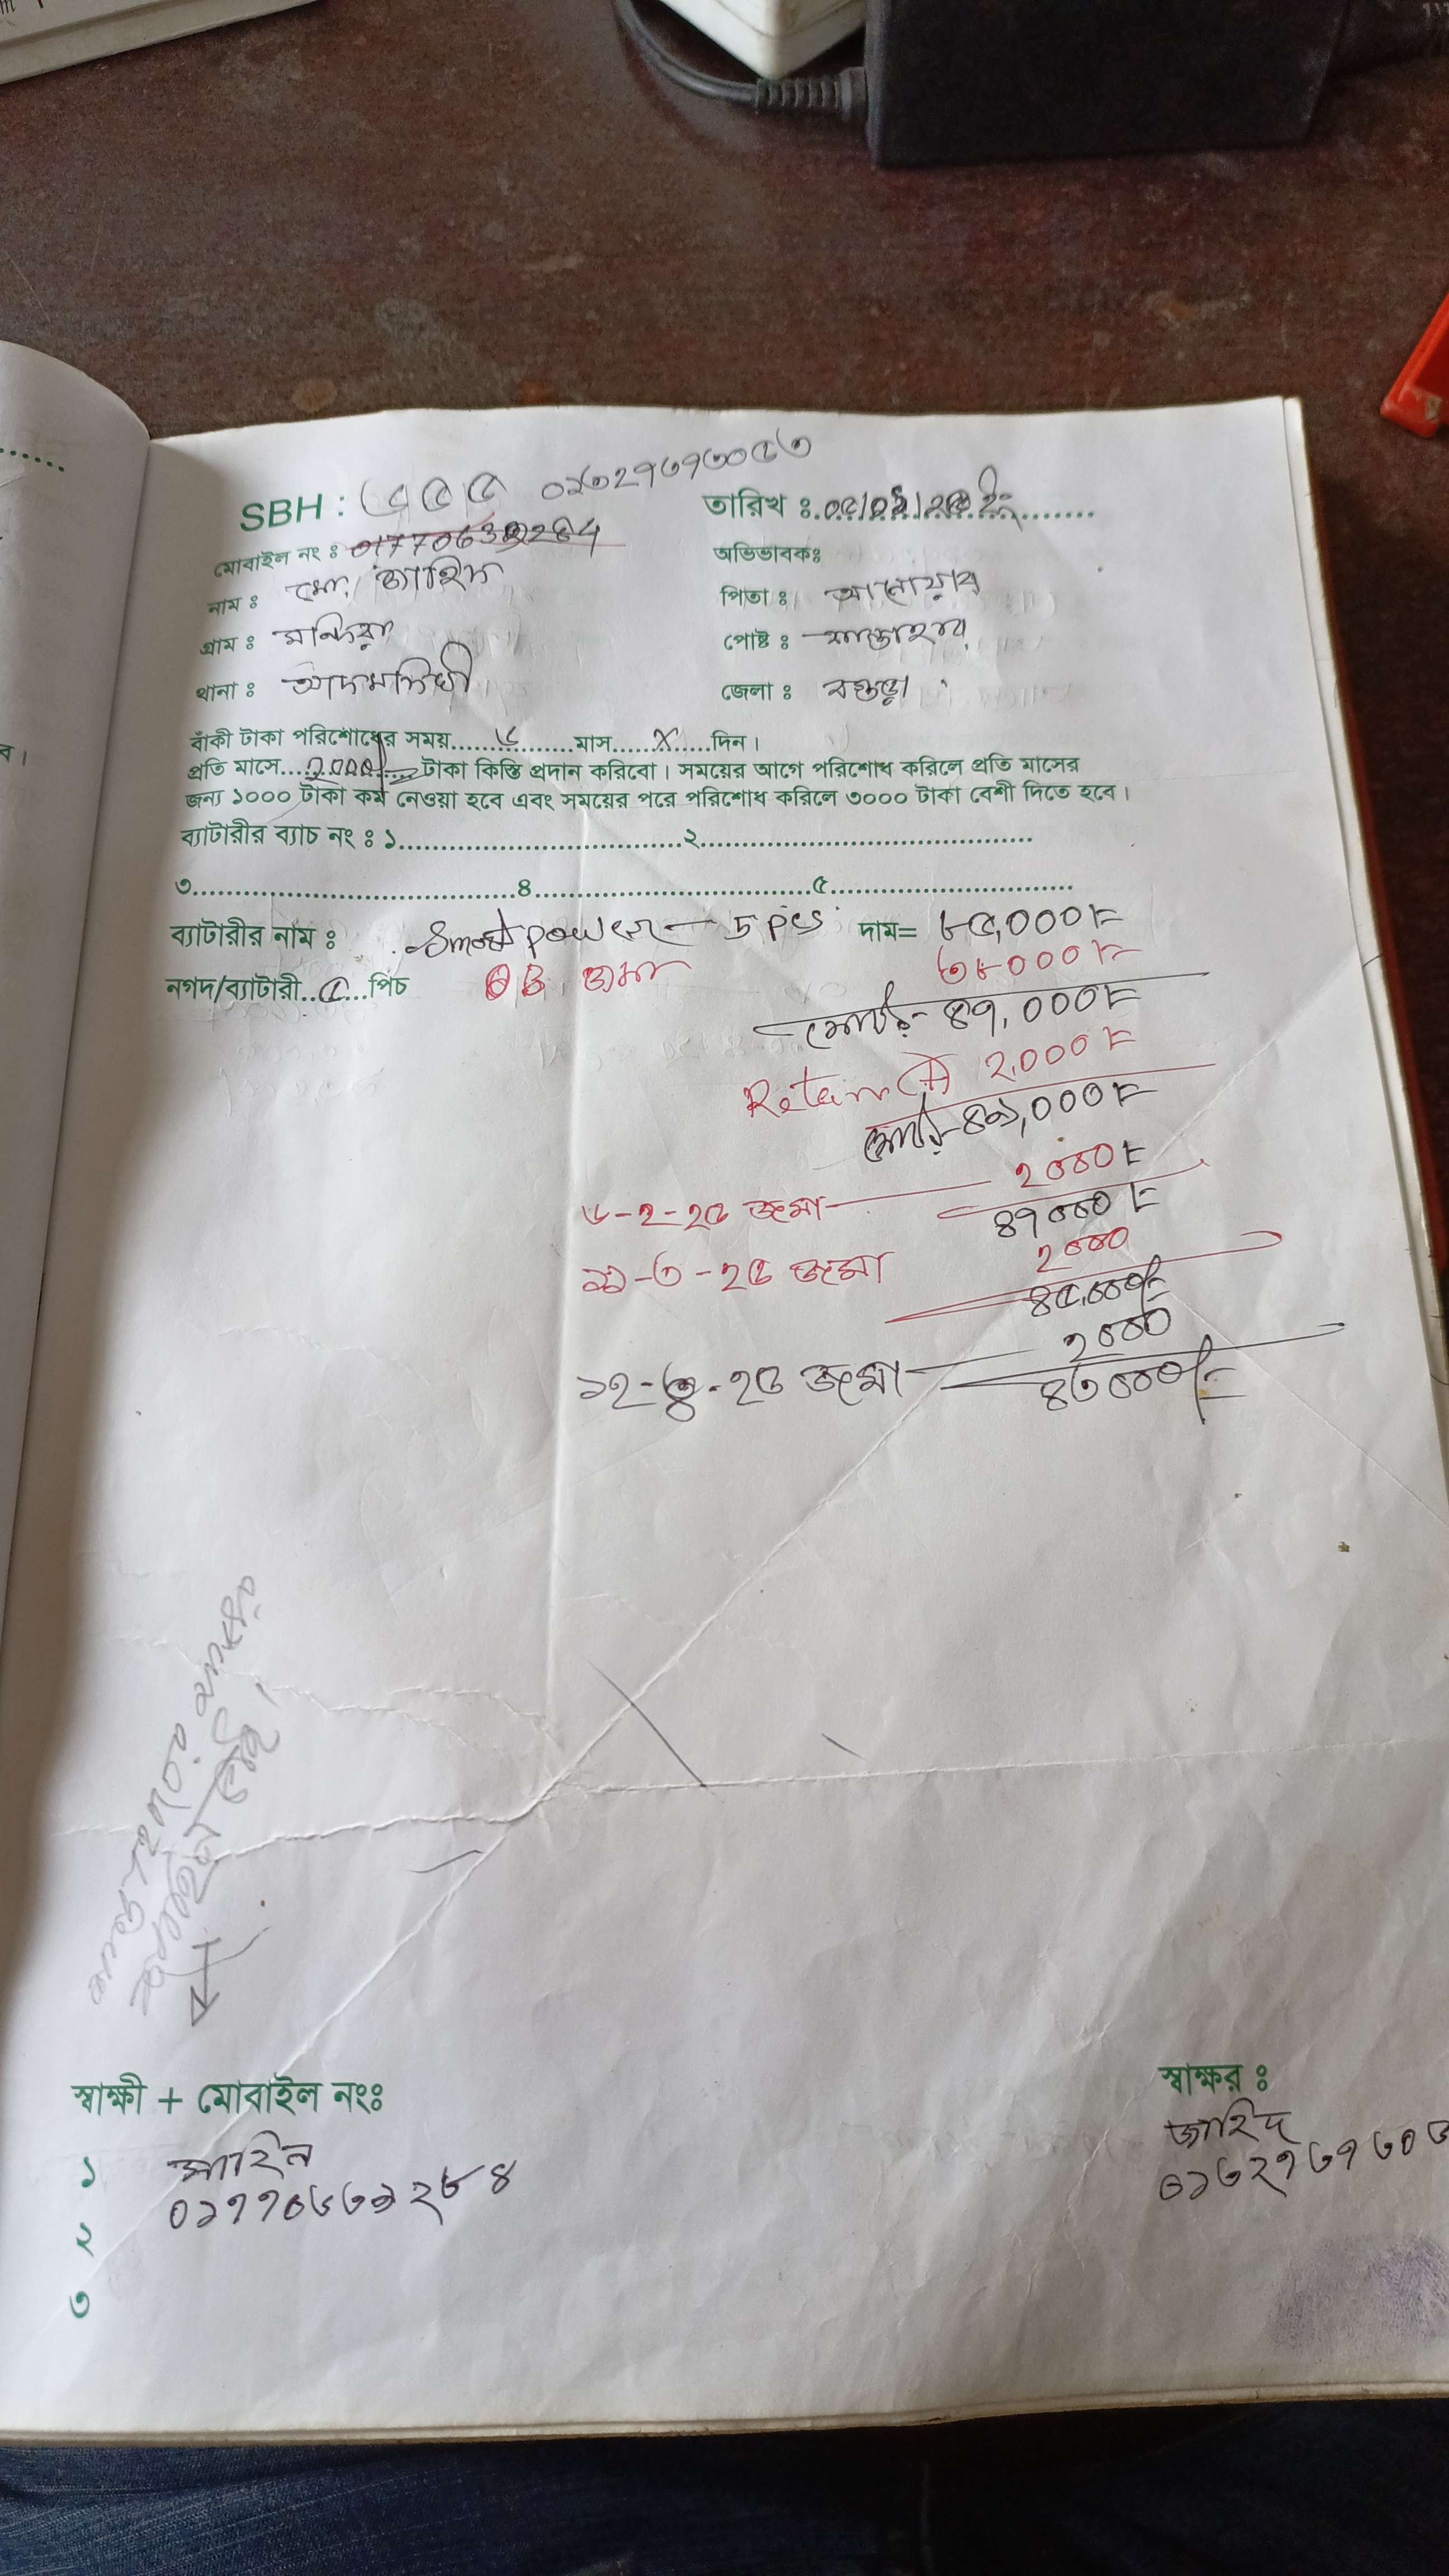 SBH : ৫৫৫ ০১৩২৭৬৭৩০৫৩
তারিখ ঃ
মোবাইল নং ঃ
অভিভাবকঃ
নাম ঃ মো. জাহিদ
পিতা ঃ আনোয়ার
গ্রাম ঃ
পোষ্ট ঃ সান্তাহার
থানা ঃ আদমদিঘী
জেলা ঃ বগুড়া
বাঁকী টাকা পরিশোধের সময়......৬......মাস......X......দিন।
প্রতি মাসে...... টাকা কিস্তি প্রদান করিবো। সময়ের আগে পরিশোধ করিলে প্রতি মাসের
জন্য ১০০০ টাকা কম নেওয়া হবে এবং সময়ের পরে পরিশোধ করিলে ৩০০০ টাকা বেশী দিতে হবে।
ব্যাটারীর ব্যাচ নং ঃ ১..............................২..............................
৩..............................৪..............................৫..............................
ব্যাটারীর নাম ঃ Smart power – 5 pcs দাম= ৮৫,০০০/=
নগদ/ব্যাটারী..৫...পিচ OB জমা ৩৮০০০/=
মোট- ৪৭,০০০/=
Return (+) ২,০০০/=
মোট- ৪৯,০০০/=
৬-২-২৫ জমা ২০০০/=
৪৭০০০/=
১১-৩-২৫ জমা ২০০০
৪৫,০০০/=
১২-৪-২৫ জমা ২০০০
৪৩০০০/=
স্বাক্ষী + মোবাইল নংঃ
স্বাক্ষর ঃ
১ সাহিন
জাহিদ
০১৭৭০৬৩৯২৮৪
২
৩